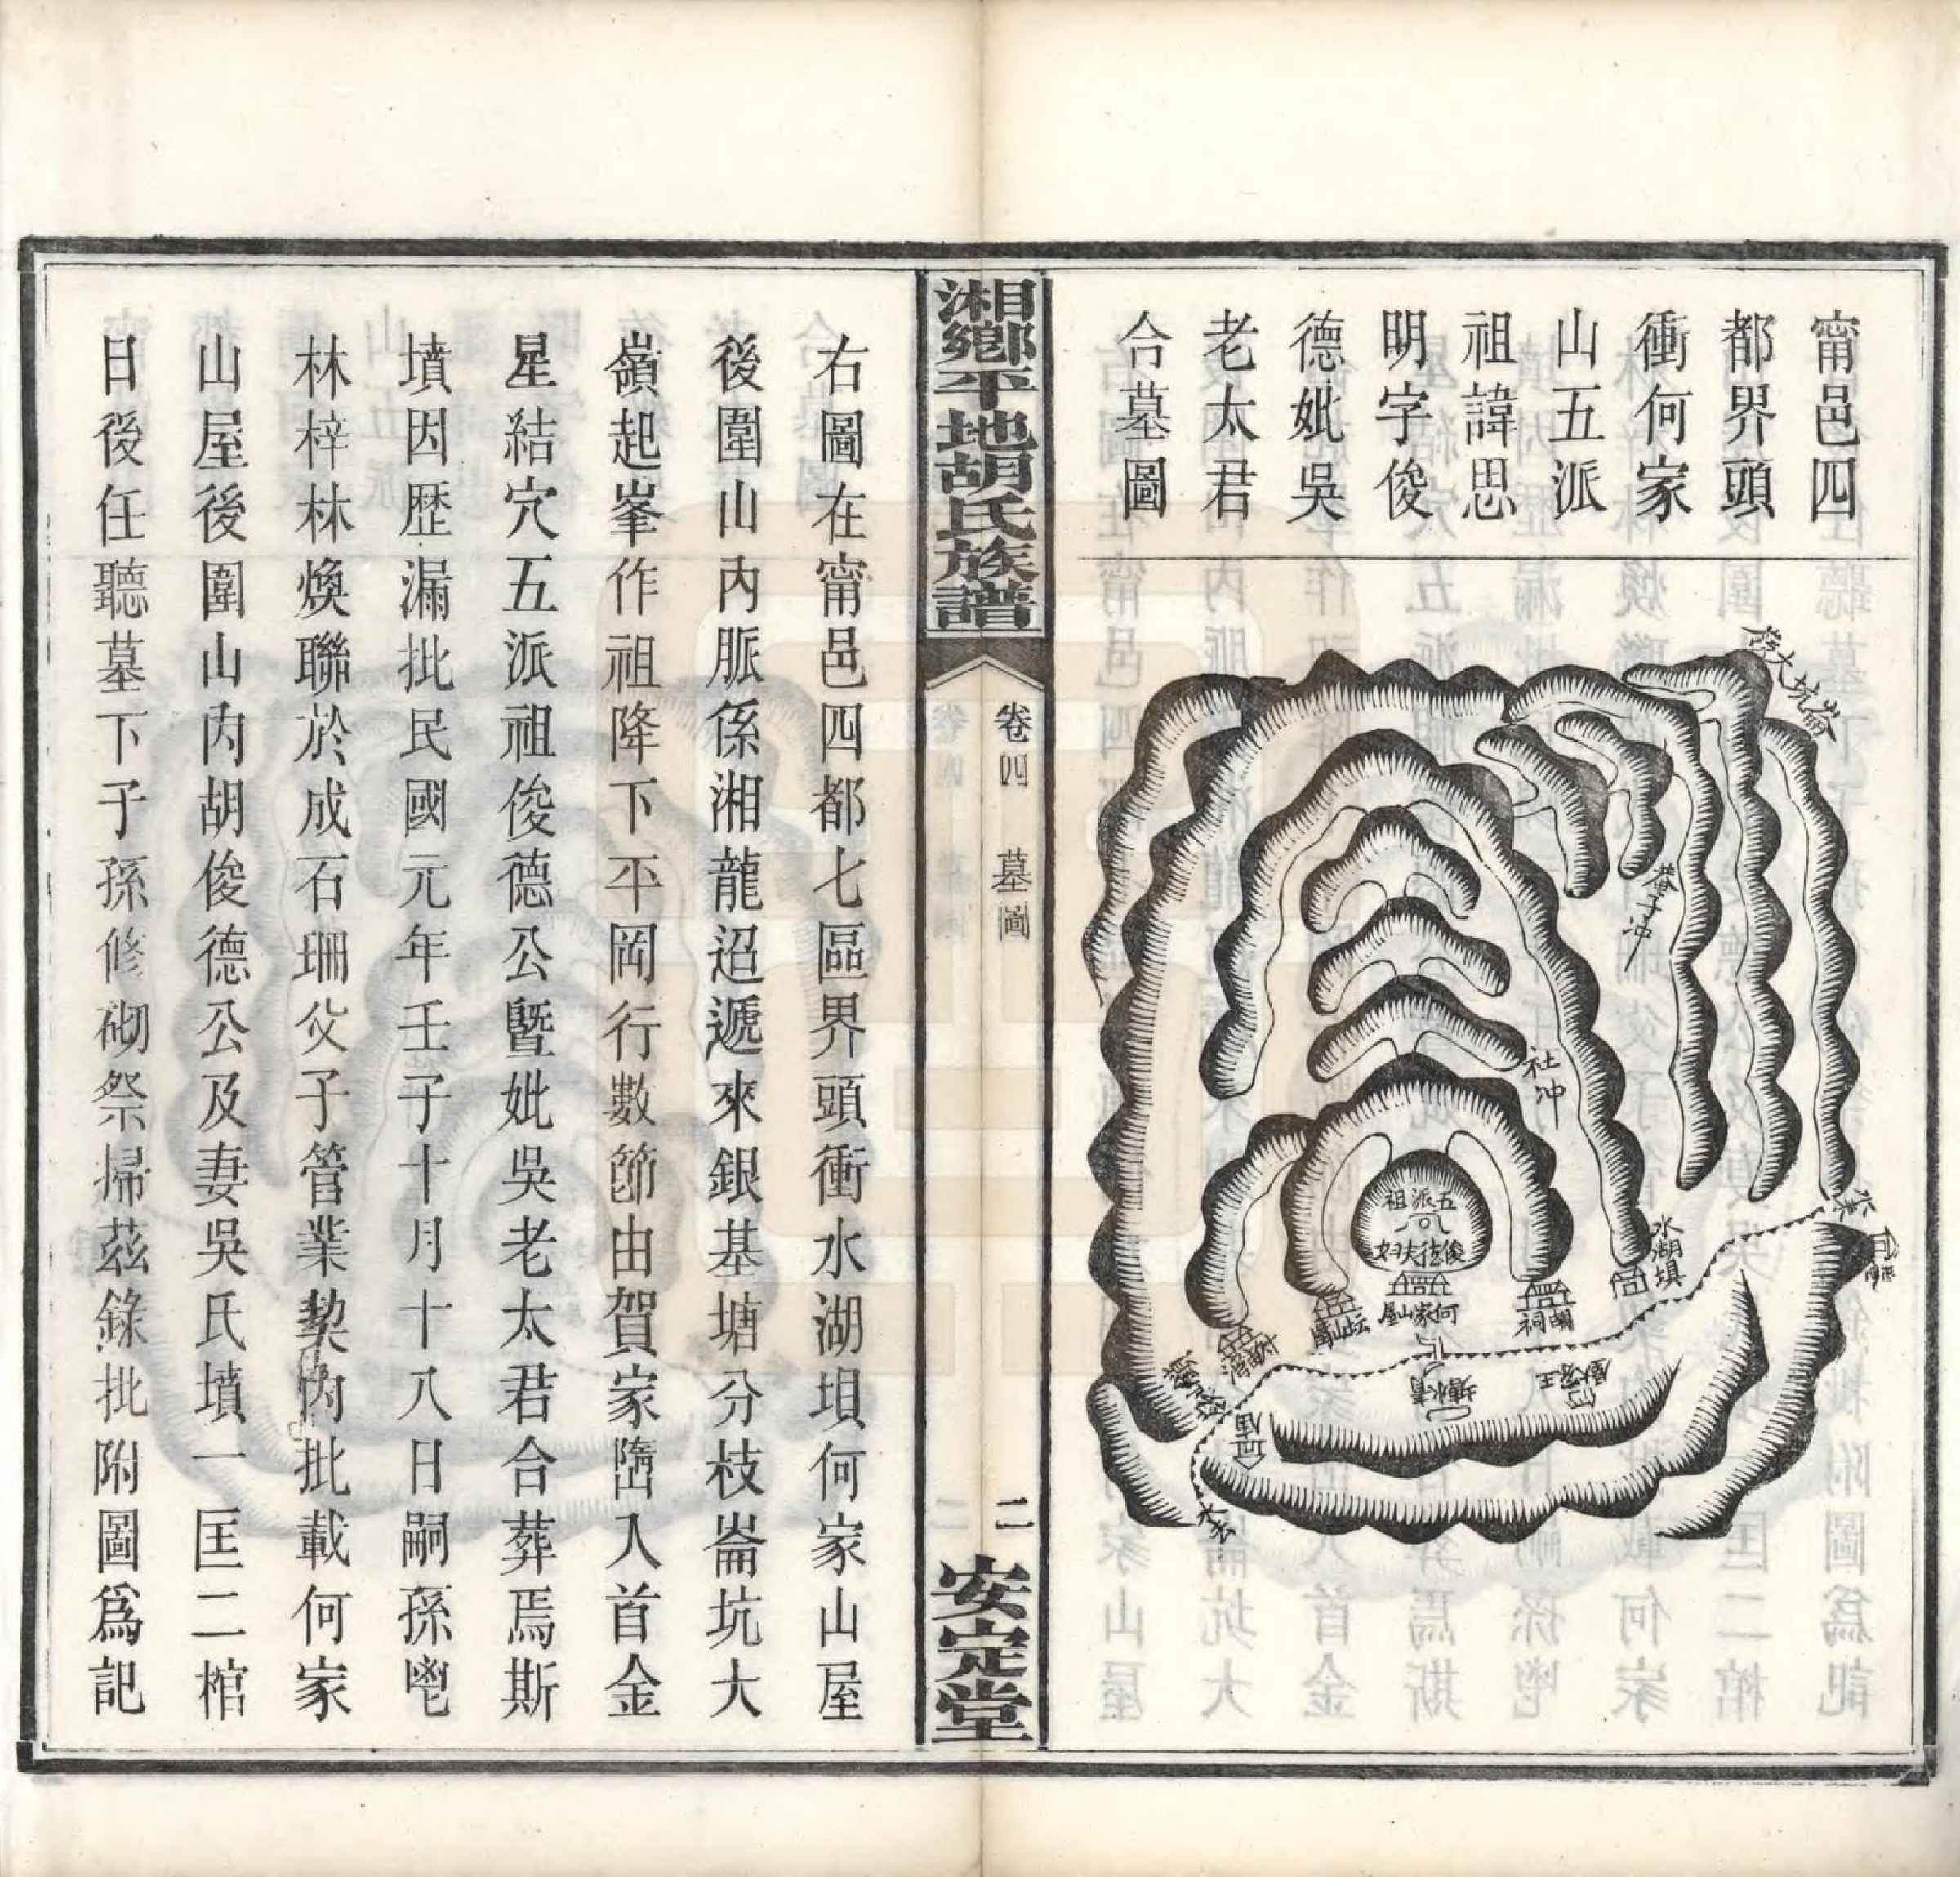 甯邑四
都界頭
衝何家
山五派
祖諱思
明字俊
德妣吳
老太君
合墓圖
社冲
水湖埧
五派祖
胡祠
何家山屋
湘鄉平地胡氏族譜
卷四
墓圖
二
安定堂
右圖在甯邑四都七區界頭衝水湖埧何家山屋
後圍山內脈係湘龍迢遞來銀基塘分枝崙坑大
嶺起峯作祖降下平岡行數節由賀家隯入首金
星結穴五派祖俊德公曁妣吳老太君合葬焉斯
墳因歷漏批民國元年壬子十月十八日嗣孫鬯
林梓林煥聯於成石珊父子管業契內批載何家
山屋後圍山內胡俊德公及妻吳氏墳一匡二棺
日後任聽墓下子孫修砌祭掃茲錄批附圖爲記